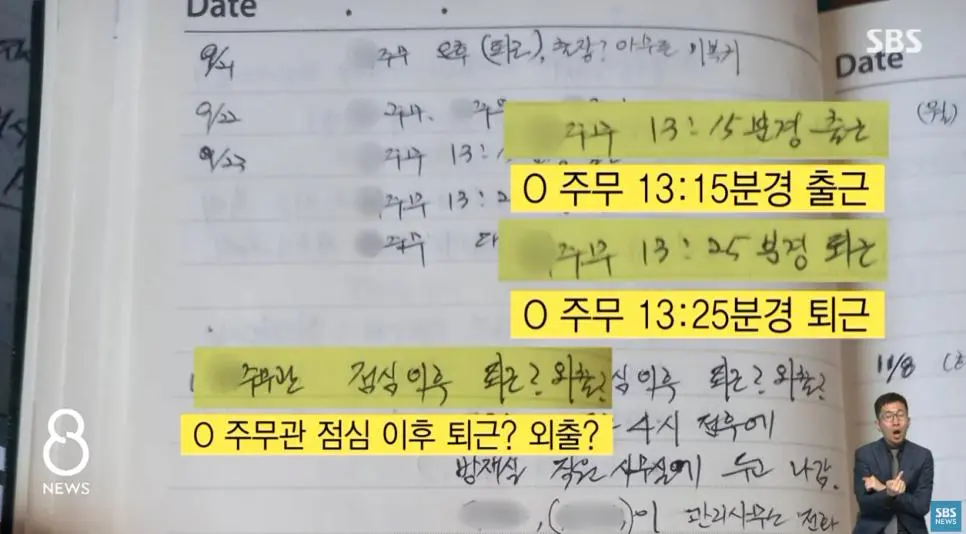 Date
SBS
Date
9/21 주무 오후 (퇴근), 출장? 아무튼 미복귀
(월)
9/22 주무. 주무
주무 13:15분경 출근
9/23 주무 13:1
O 주무 13:15분경 출근
주무 13:2
주무 13:25분경 퇴근
주무
O 주무 13:25분경 퇴근
주무관 점심 이후 퇴근? 외출? 심 이후 퇴근? 외출?
11/8
O 주무관 점심 이후 퇴근? 외출?
4시 전후에
방재실 작은 사무실에 두고 나감.
8
NEWS
,( )이 관리사무는 전화
SBS
NEWS